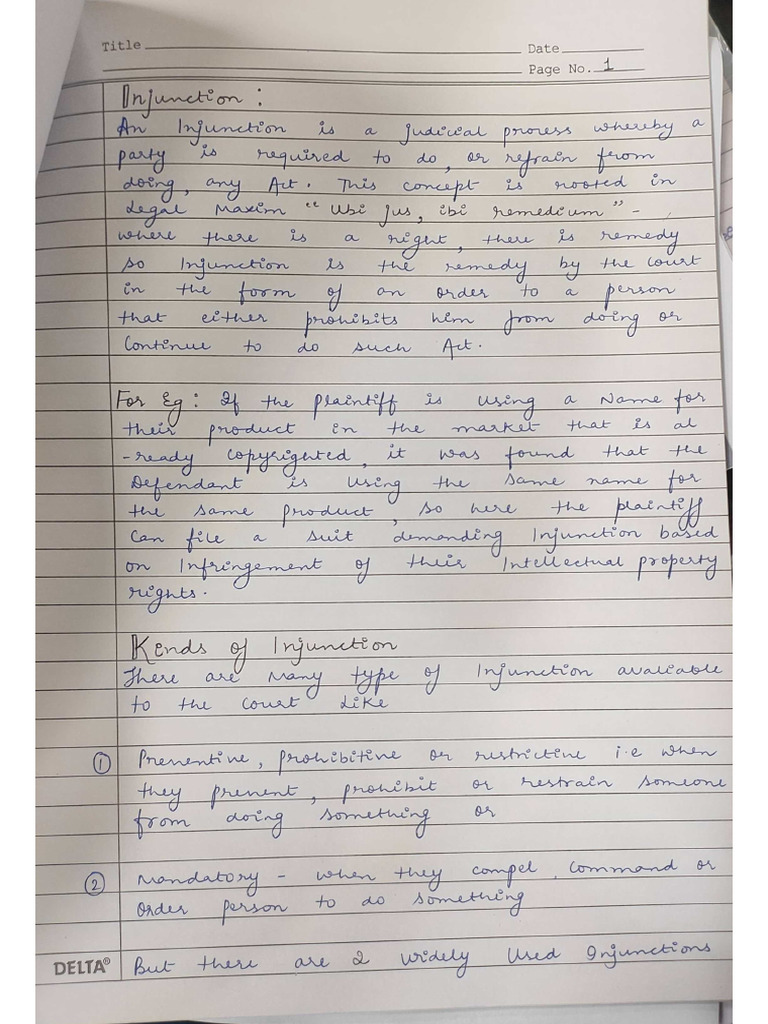 Title
Date
Page No. 1
Injunction :
An Injunction is a judicial process whereby a
party is required to do, or refrain from
doing, any Act. This concept is rooted in
Legal Maxim "Ubi jus, ibi remedium" -
where there is a right, there is remedy
so Injunction is the remedy by the court
in the form of an order to a person
that either prohibits him from doing or
Continue to do such Act.
For Eg : If the plaintiff is using a Name for
their product in the market that is al
-ready copyrighted, it was found that the
Defendant is using the same name for
the same product, so here the plaintiff
can file a suit demanding Injunction based
on Infringement of their Intellectual property
rights.
Kinds of Injunction
There are Many type of Injunction available
to the court Like
① Preventive, prohibitive or restrictive i.e when
they prevent, prohibit or restrain someone
from doing something or
② Mandatory - when they compel, Command or
order person to do something
DELTA® But there are 2 widely Used Injunctions